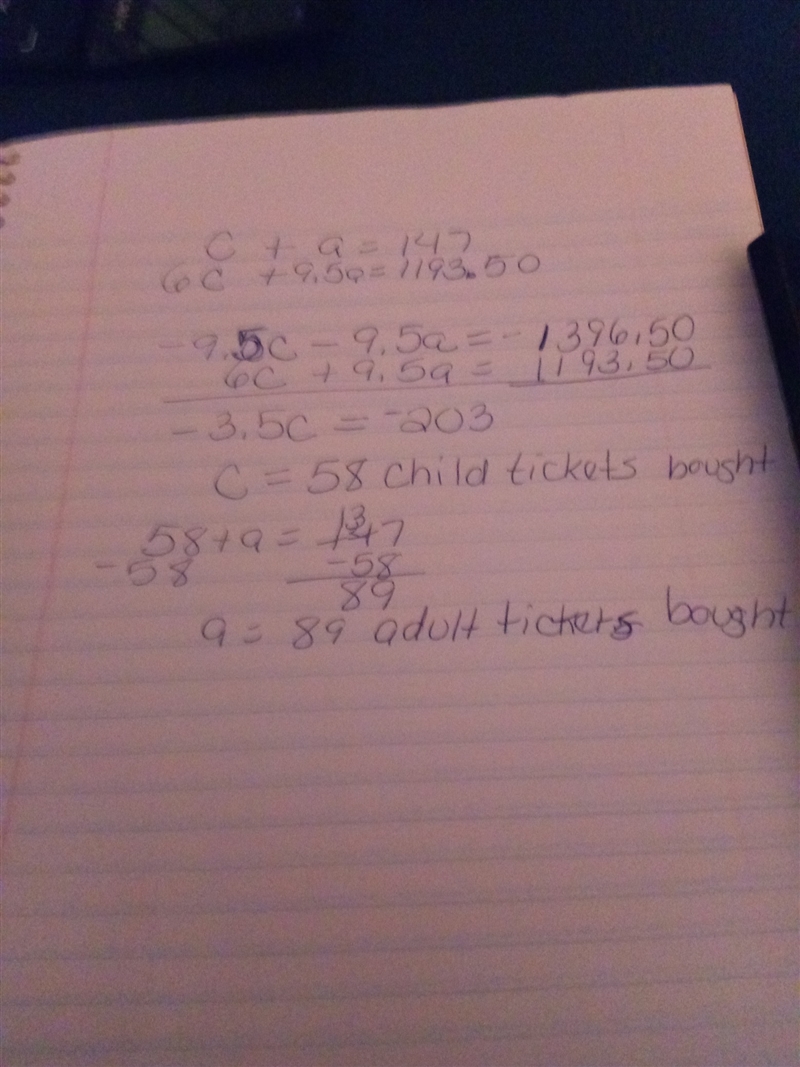 C + a = 147
6C + 9.5a = 1193.50
-9.5C - 9.5a = -1396.50
6C + 9.5a = 1193.50
-3.5C = -203
C = 58 child tickets bought
13
58 + a = 147
-58 -58
89
a = 89 adult tickets bought